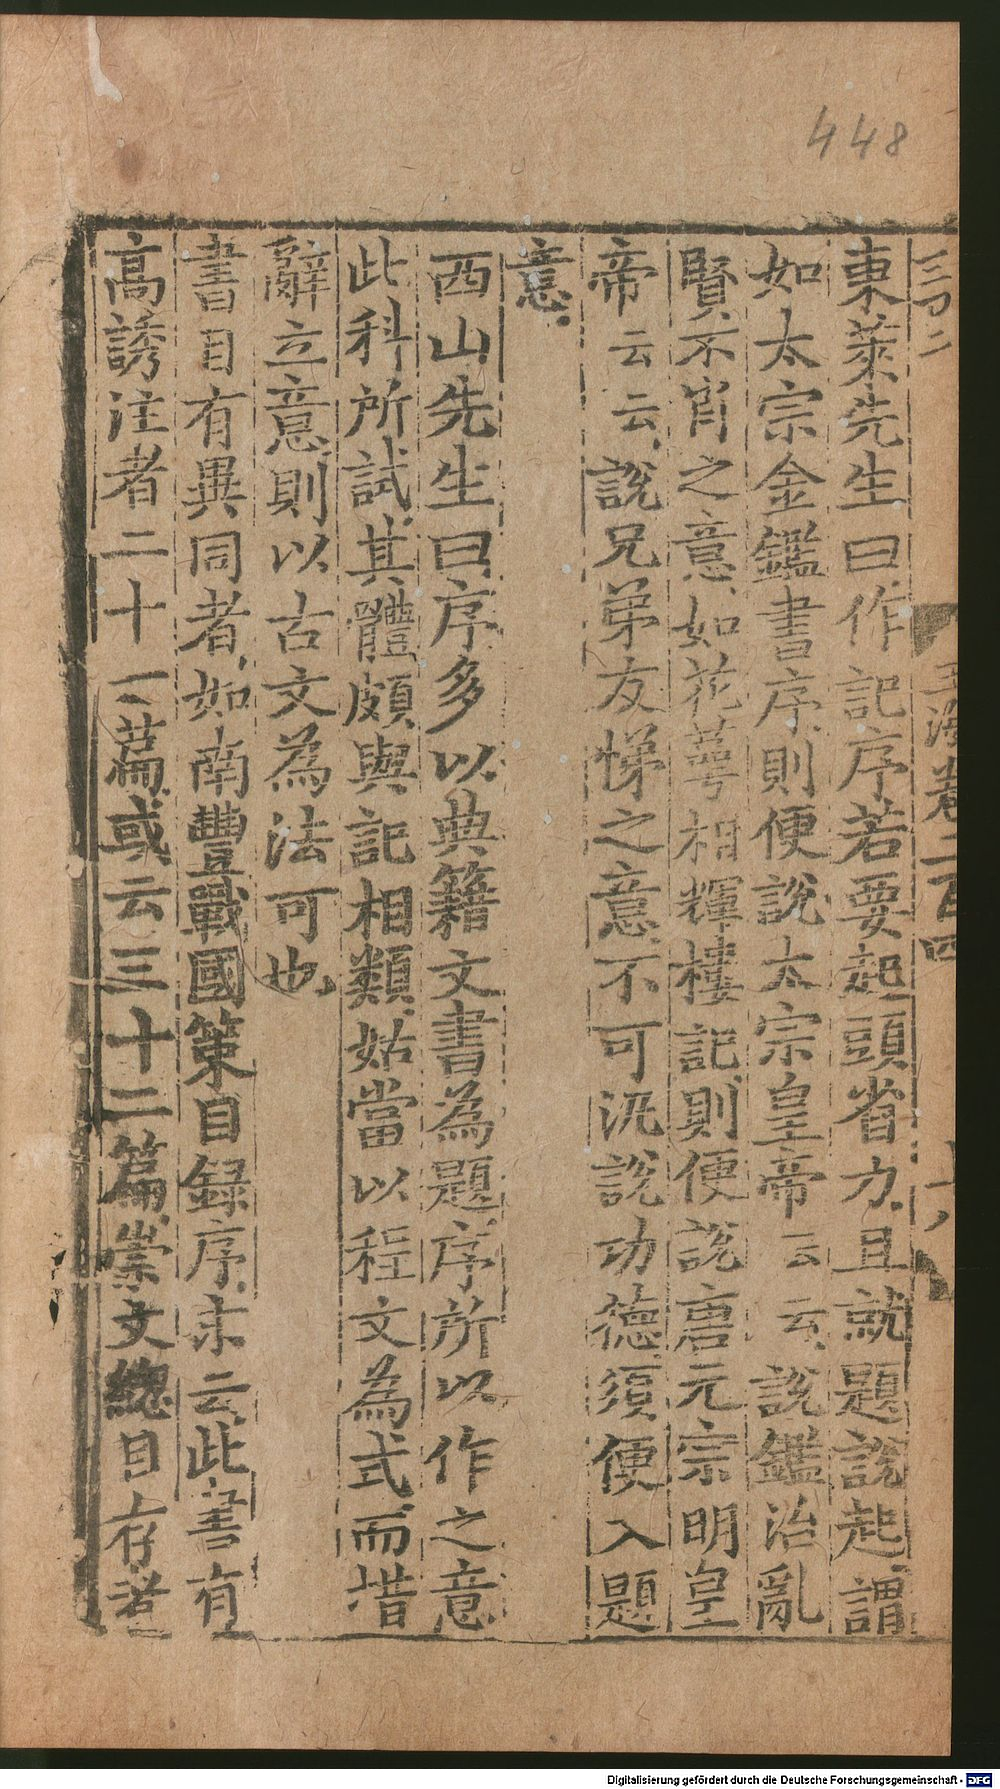 448
玉海卷二百四
東萊先生曰作記序若要起頭省力且就題說起謂
如太宗金鑑書序則便說太宗皇帝云云說鑑治亂
賢不肖之意如花萼相輝樓記則便說唐元宗明皇
帝云云說兄弟友悌之意不可汎說功德須便入題
意
西山先生曰序多以典籍文書為題序所以作之意
此科所試其體頗與記相類姑當以程文為式而措
辭立意則以古文為法可也
書目有異同者如南豐戰國策目録序末云此書有
高誘注者二十一篇或云三十二篇崇文總目存者
Digitalisierung gefördert durch die Deutsche Forschungsgemeinschaft - DFG